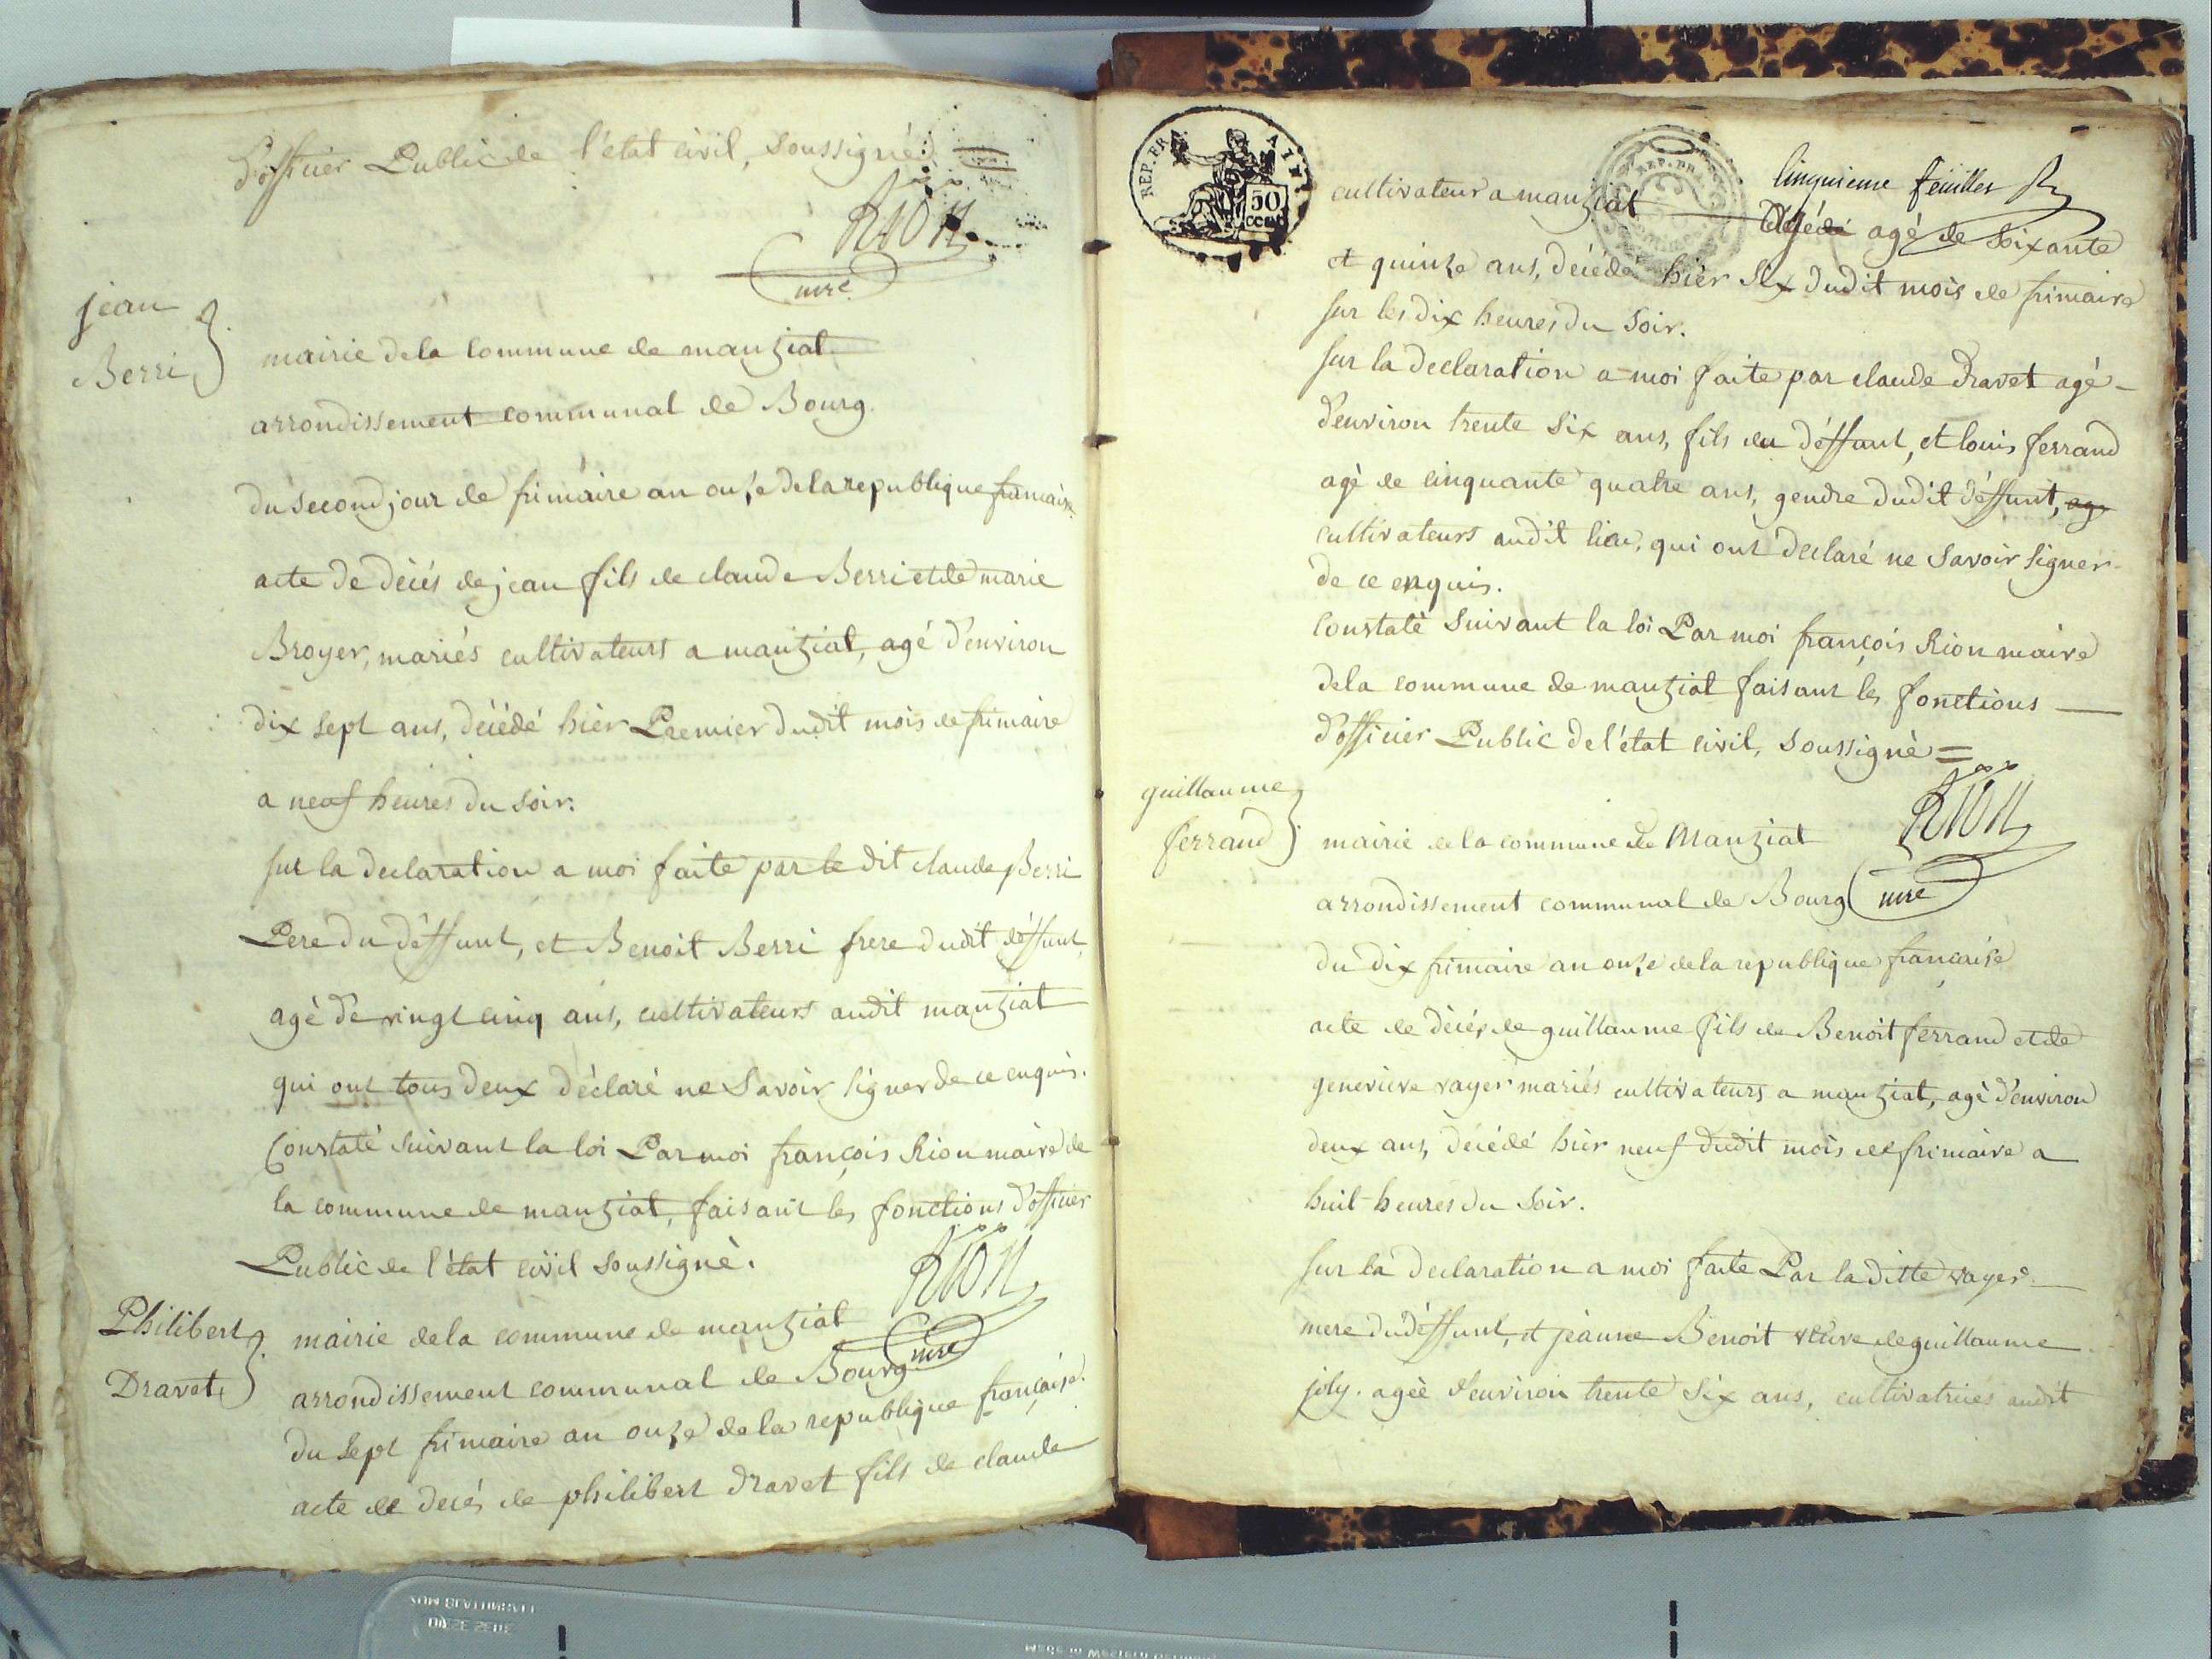 d'officier Public de l'état civil, soussigné
Rion
mre
jean
Berri
mairie dela commune de manziat
arrondissement communal de Bourg.
du second jour de frimaire an onze dela republique francaise
acte de décés de jean fils de claude Berri et de marie
Broyer, mariés cultivateurs a manziat, agé d'environ
dix sept ans, décédé hièr Premier dudit mois de frimaire
a neuf heures du soir.
sur la declaration a moi faite par le dit claude Berri
Pere du déffunt, et Benoit Berri frere dudit déffunt,
agé de vingt cinq ans, cultivateurs audit manziat
qui ont tous deux déclaré ne Savoir signer de ce enquis.
Constaté suivant la loi Par moi françois Rion maire de
la commune de manziat, faisant les fonctions d'officier
Public de l'état civil soussigné.
Rion
mre
Philibert
Dravet
mairie dela commune de manziat
arrondissement communal de Bourg
du sept frimaire an onze de la republique française.
acte de decés de philibert dravet fils de claude
REP. FRA
AIN.
50
CENT
REP. FRA
cinquieme feuillet
cultivateur a manziat
agé de soixante
et quinze ans, décédé hièr six dudit mois de frimaire
sur les dix heures du soir.
sur la declaration a moi faite par claude dravet agé
d'environ trente six ans, fils du déffunt, et louis ferrand
agé de cinquante quatre ans, gendre dudit déffunt, ag
cultivateurs audit lieu, qui ont déclaré ne savoir signer
de ce enquis.
Constaté suivant la loi Par moi françois Rion maire
dela commune de manziat faisant les fonctions
d'officier Public de l'état civil, soussigné =
Rion
mre
guillaume
ferrand
mairie de la commune de Manziat
arrondissement communal de Bourg
du dix frimaire an onze de la republique française
acte de décés de guillaume fils de Benoit ferrand et de
genevieve vayer mariés cultivateurs a manziat, agé d'environ
deux ans, décédé hièr neuf dudit mois de frimaire a
huit heures du soir.
sur la declaration a moi faite Par la ditte vayer
mere du déffunt, et jeanne Benoit veuve de guillaume
joly. agée d'environ trente six ans, cultivatrices audit